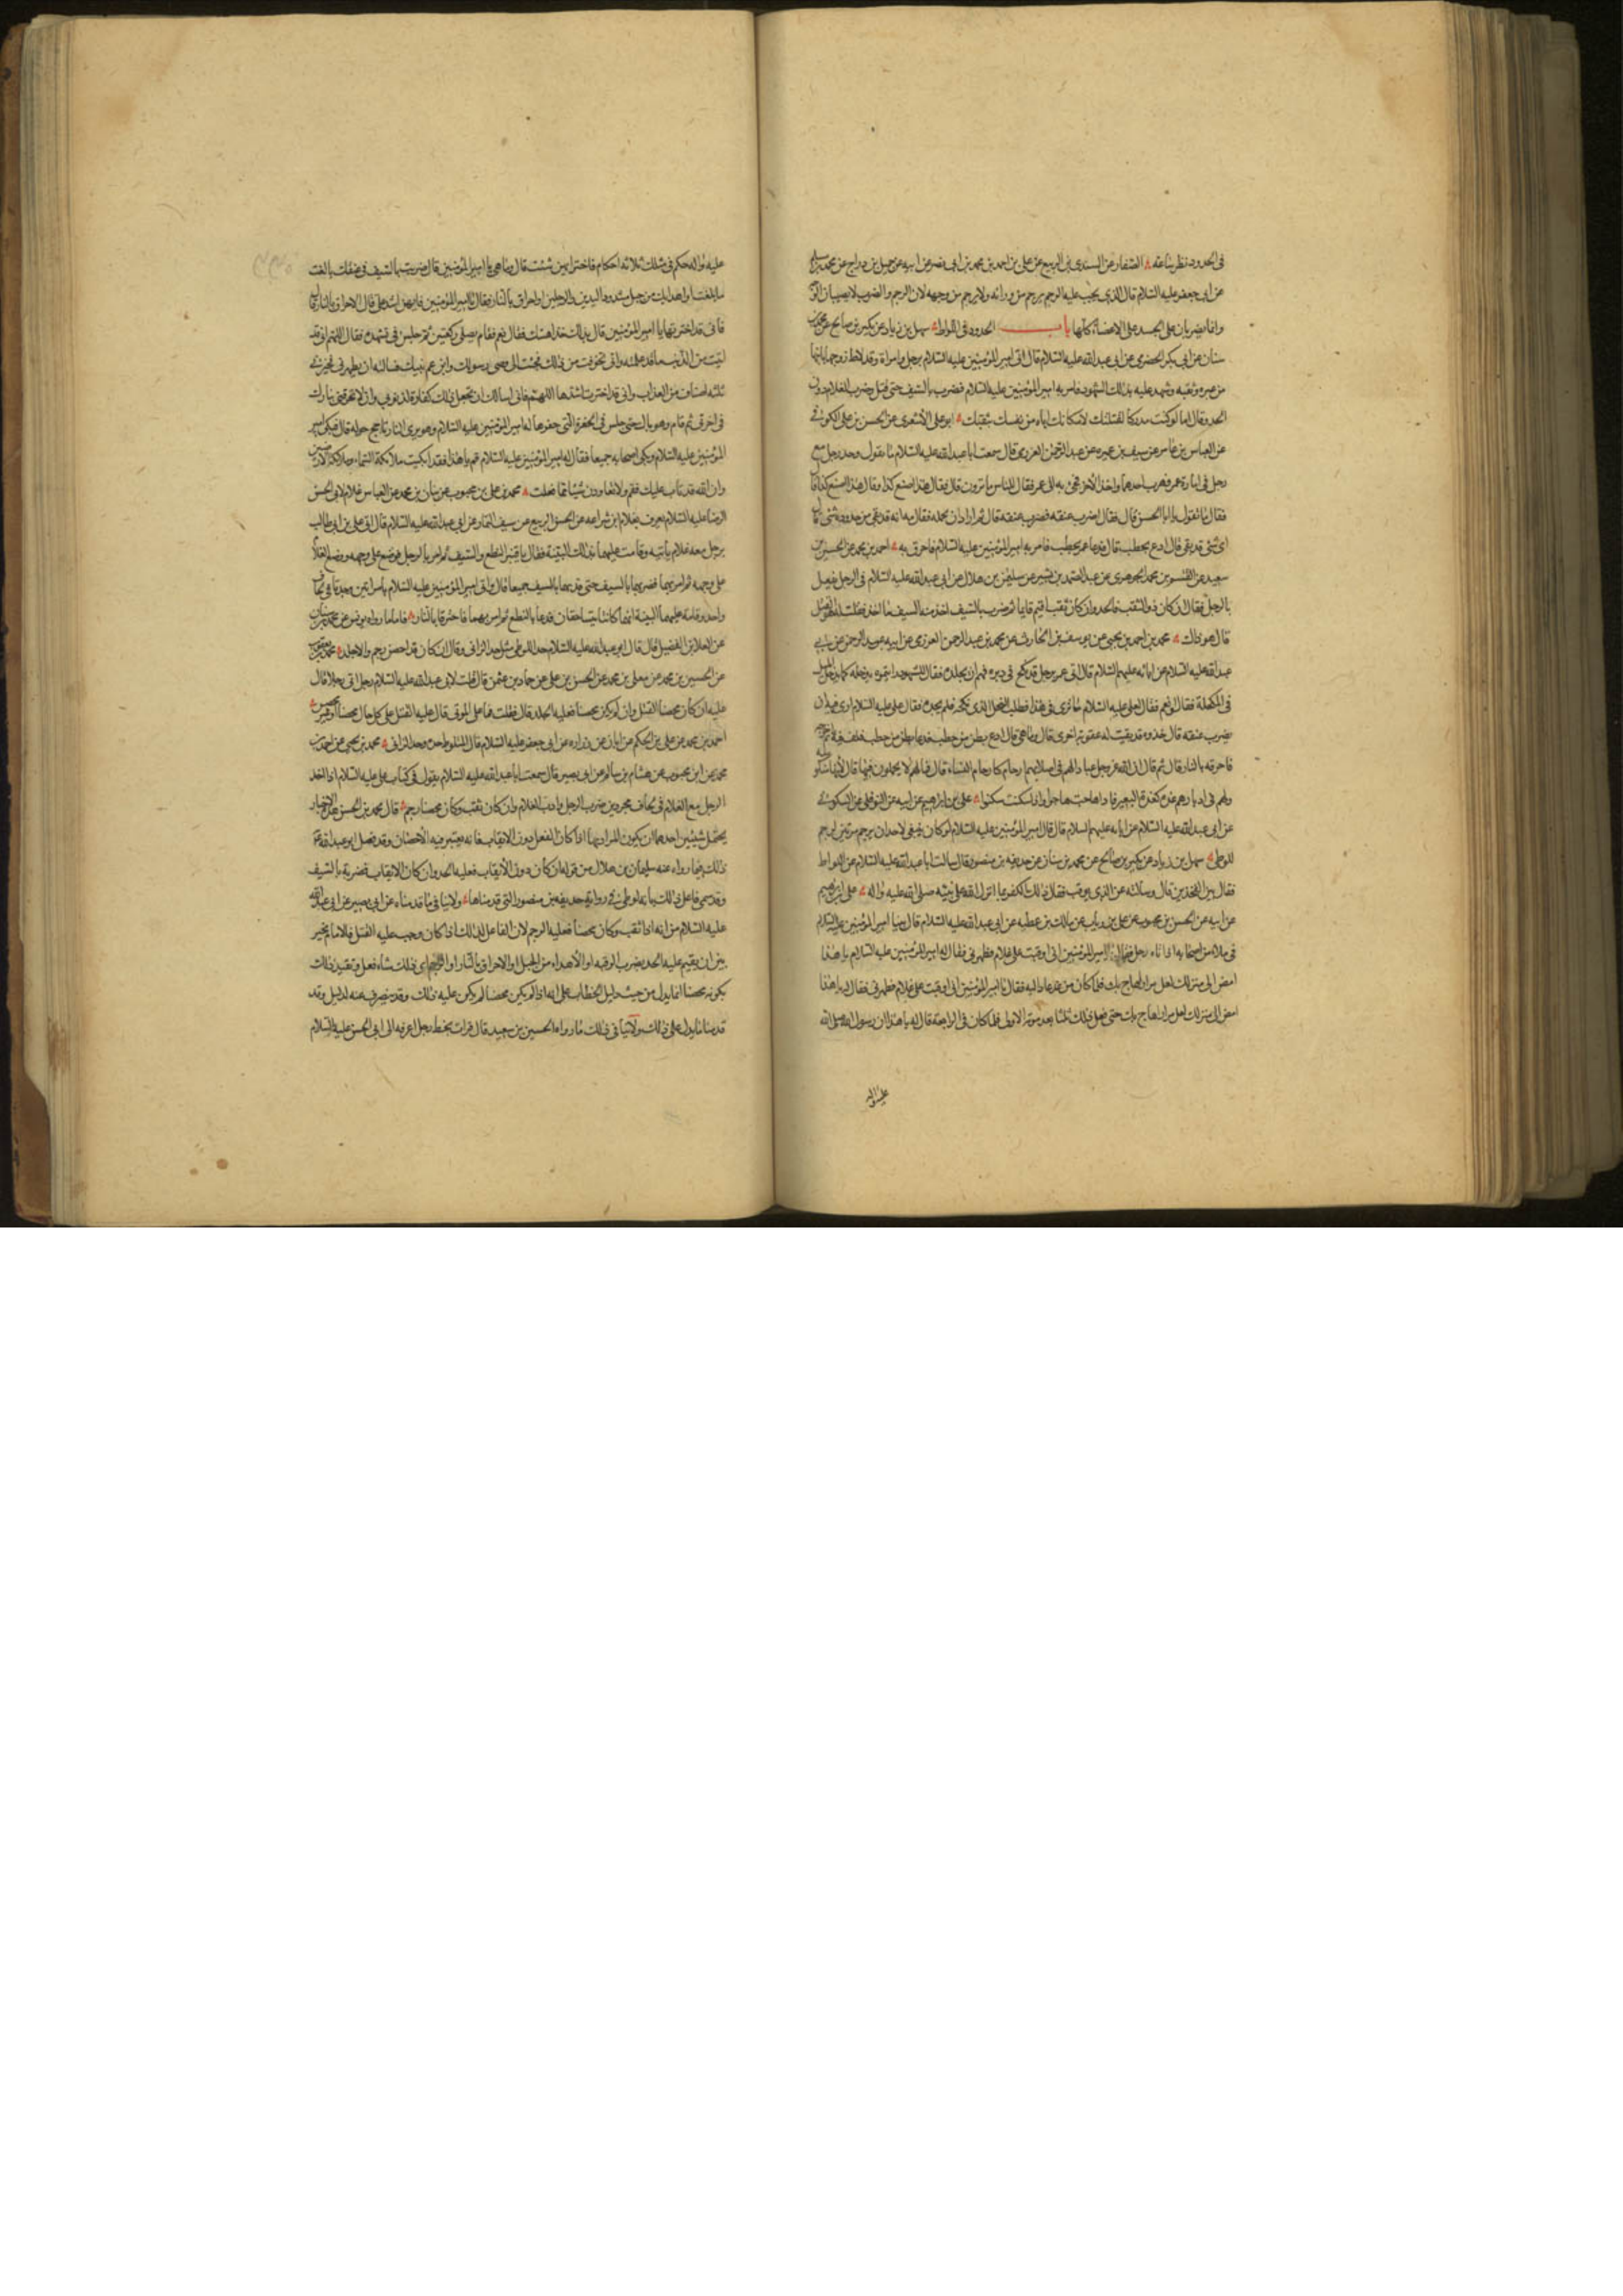 في الحدود نظر ساعة الصفار عن السندي بن الربيع عن علي بن احمد بن محمد بن ابي نصر عن ابيه عن جميل بن دراج عن محمد بن مسلم
عن ابي جعفر عليه السلام قال الذي يجب عليه الرجم يرجم من ورائه ولا يرجم من وجهه لان الرجم والضرب لا يصيبان الوجه
وانما يضربان على الجسد على الاعضاء كلها باب الحدود في اللواط سهل بن زياد عن بكر بن صالح عن محمد بن
سنان عن ابي بكر الحضرمي عن ابي عبد الله عليه السلام قال اتى امير المؤمنين عليه السلام برجل وامراة وقد لاط زوجها بابنها
من غيره وثقبه وشهد عليه بذلك الشهود فامر به امير المؤمنين عليه السلام فضرب بالسيف حتى قتل وضرب الغلام دون
الحد وقال اما لو كنت مدركا لقتلتك لامكانك اياه من نفسك بثقبك ابو علي الاشعري عن الحسن بن علي الكوفي
عن العباس بن عامر عن سيف بن عميرة عن عبد الرحمن العرزمي قال سمعت ابا عبد الله عليه السلام يقول وجد رجل مع
رجل في امارة عمر فهرب احدهما واخذ الاخر فجيء به الى عمر فقال للناس ما ترون قال فقال هذا اصنع كذا وقال هذا اصنع كذا قال
فقال ما تقول يا ابا الحسن قال فقال اضرب عنقه فضرب عنقه قال ثم اراد ان يحمله فقال مه انه قد بقي من حدوده شيء قال
اي شيء قد بقي قال ادع بحطب قال فدعا عمر بحطب فامر به امير المؤمنين عليه السلام فاحرق به احمد بن محمد عن الحسين بن
سعيد عن القسم بن محمد الجوهري عن عبد الصمد بن بشير عن سليمن بن هلال عن ابي عبد الله عليه السلام في الرجل يفعل
بالرجل فقال ان كان دون الثقب فالحد وان كان ثقب اقيم قايما ثم ضرب بالسيف اخذ منه السيف ما اخذ فقلت له هو القتل
قال هو ذاك محمد بن احمد بن يحيى عن يوسف بن الحارث عن محمد بن عبد الرحمن العرزمي عن ابيه عبد الرحمن عن ابي
عبد الله عليه السلام عن ابائه عليهم السلام قال اتى عمر برجل قد نكح في دبره فهم ان يجلده فقال للشهود رايتموه يدخله كما يدخل الميل
في المكحلة فقالوا نعم فقال لعلي عليه السلام ما ترى في هذا فطلب الفحل الذي نكحه فلم يجده فقال علي عليه السلام ارى فيه ان
يضرب عنقه قال خذوه فقد بقيت له عقوبة اخرى قال وما هي قال ادع بطن من حطب فدعا بطن من حطب فلف فيه ثم
فاحرقه بالنار قال ثم قال ان لله عز وجل عبادا لهم في اصلابهم ارحام كارحام النساء قال فما لهم لا يحملون فيها قال لانها منكوسة
ولهم في ادبارهم غدة كغدة البعير فاذا هاجت هاجوا واذا سكنت سكنوا علي بن ابراهيم عن ابيه عن النوفلي عن السكوني
عن ابي عبد الله عليه السلام عن ابائه عليهم السلام قال قال امير المؤمنين عليه السلام لو كان ينبغي لاحد ان يرجم مرتين لرجم
اللوطي سهل بن زياد عن بكر بن صالح عن محمد بن سنان عن حذيفه بن منصور قال سالت ابا عبد الله عليه السلام عن اللواط
فقال بين الفخذين قال وسالته عن الذي يوقب فقال ذلك الكفر بما انزل الله على نبيه صلى الله عليه واله علي بن ابراهيم
عن ابيه عن الحسن بن محبوب عن علي بن رئاب عن مالك بن عطيه عن ابي عبد الله عليه السلام قال بينا امير المؤمنين عليه السلام
في ملاء من اصحابه اذ اتاه رجل فقال يا امير المؤمنين اني اوقبت على غلام فطهرني فقال له امير المؤمنين عليه السلام يا هذا
امض الى منزلك لعل مرارا هاج بك فلما كان من غد عاد اليه فقال يا امير المؤمنين اني اوقبت على غلام فطهرني فقال له يا هذا
امض الى منزلك لعل مرارا هاج بك حتى فعل ذلك ثلثا بعد مرته الاولى فلما كان في الرابعة قال له يا هذا ان رسول الله صلى الله
عليه واله
عليه واله حكم في مثلك ثلاثه احكام فاختر ايهن شئت قال وما هي يا امير المؤمنين قال ضربة بالسيف في عنقك بالغت
ما بلغت او اهداب من جبل مشدود اليدين والرجلين او احراق بالنار فقال يا امير المؤمنين فايهن اشد علي قال الاحراق بالنار قال
فاني قد اخترتها يا امير المؤمنين قال خذ لذلك اهبتك فقال نعم فقام فصلى ركعتين ثم جلس في تشهده فقال اللهم اني قد
اتيت من الذنب ما قد علمته واني تخوفت من ذلك فجئت الى وصي رسولك وابن عم نبيك فسالته ان يطهرني فخيرني
ثلثه اصناف من العذاب واني قد اخترت اشدها اللهم فاني اسالك ان تجعل ذلك كفارة لذنوبي وان لا تحرقني بنارك
في اخرتي ثم قام وهو باك حتى جلس في الحفرة التي حفرها له امير المؤمنين عليه السلام وهو يرى النار تاجج حوله قال فبكى امير
المؤمنين عليه السلام وبكى اصحابه جميعا فقال له امير المؤمنين عليه السلام قم يا هذا فقد ابكيت ملائكة السماء وملائكة الارض
وان الله قد تاب عليك فقم ولا تعاودن شيئا مما فعلت محمد بن علي بن محبوب عن بنان بن محمد عن العباس غلام لابي الحسن
الرضا عليه السلام يعرف بغلام ابن شراعه عن الحسن بن الربيع عن سيف التمار عن ابي عبد الله عليه السلام قال اتى علي بن ابي طالب
برجل معه غلام ياتيه وقامت عليهما بذلك البينة فقال يا قنبر النطع والسيف ثم امر بالرجل فوضع على وجهه ووضع الغلام
على وجهه ثم امر بهما فضربهما بالسيف حتى قدهما بالسيف جميعا قال واتى امير المؤمنين عليه السلام بامراتين وجدتا في لحاف
واحد وقامت عليهما البينة انهما كانتا يتساحقان فدعا بالنطع ثم امر بهما فاحرقتا بالنار فاما ما رواه يونس عن محمد بن سنان
عن العلا بن الفضيل قال قال ابو عبد الله عليه السلام حد اللوطي مثل حد الزاني وقال ان كان قد احصن رجم والا جلد محمد بن يعقوب
عن الحسين بن محمد عن معلى بن محمد عن الحسن بن علي عن حماد بن عثمن قال قلت لابي عبد الله عليه السلام رجل اتى رجلا قال
عليه ان كان محصنا القتل وان لم يكن محصنا فعليه الجلد قال فقلت فما على الموتى قال عليه القتل على كل حال محصنا او غير محصن
احمد بن محمد عن علي بن الحكم عن ابان عن زراره عن ابي جعفر عليه السلام قال المتلوط حده حد الزاني محمد بن يحيى عن احمد بن
محمد عن ابن محبوب عن هشام بن سالم عن ابي بصير قال سمعت ابا عبد الله عليه السلام يقول في كتاب علي عليه السلام اذا اخذ
الرجل مع الغلام في لحاف مجردين ضرب الرجل وادب الغلام وان كان ثقب وكان محصنا رجم قال محمد بن الحسن هذه الاخبار
يحتمل شيئين احدهما ان يكون المراد بها اذا كان الفعل دون الايقاب فانه يعتبر فيه الاحصان وقد فصل ابو عبد الله
ذلك فيما رواه عنه سليمان بن هلال من قوله ان كان دون الايقاب فعليه الحد وان كان الايقاب فضربة بالسيف
وقد سمي فاعل ذلك بانه لوطي في رواية حذيفه بن منصور التي قدمناها ولا ينافي ما قدمناه عن ابي بصير عن ابي عبد الله
عليه السلام من انه اذا ثقب وكان محصنا فعليه الرجم لان الفاعل لذلك اذا كان وجب عليه القتل فالامام مخير
بين ان يقيم عليه الحد بضرب الرقبه او الاهداء من الجبل او الاحراق بالنار او الرجم اي ذلك شاء فعل وتقييد ذلك
بكونه محصنا انما يدل من حيث دليل الخطاب على انه اذا لم يكن محصنا لم يكن عليه ذلك وقد ينصرف عنه لدليل وقد
قدمنا ما يدل على ذلك ولا ينافي ذلك ما رواه الحسين بن سعيد قال قرات بخط رجل اعرفه الى ابي الحسن عليه السلام